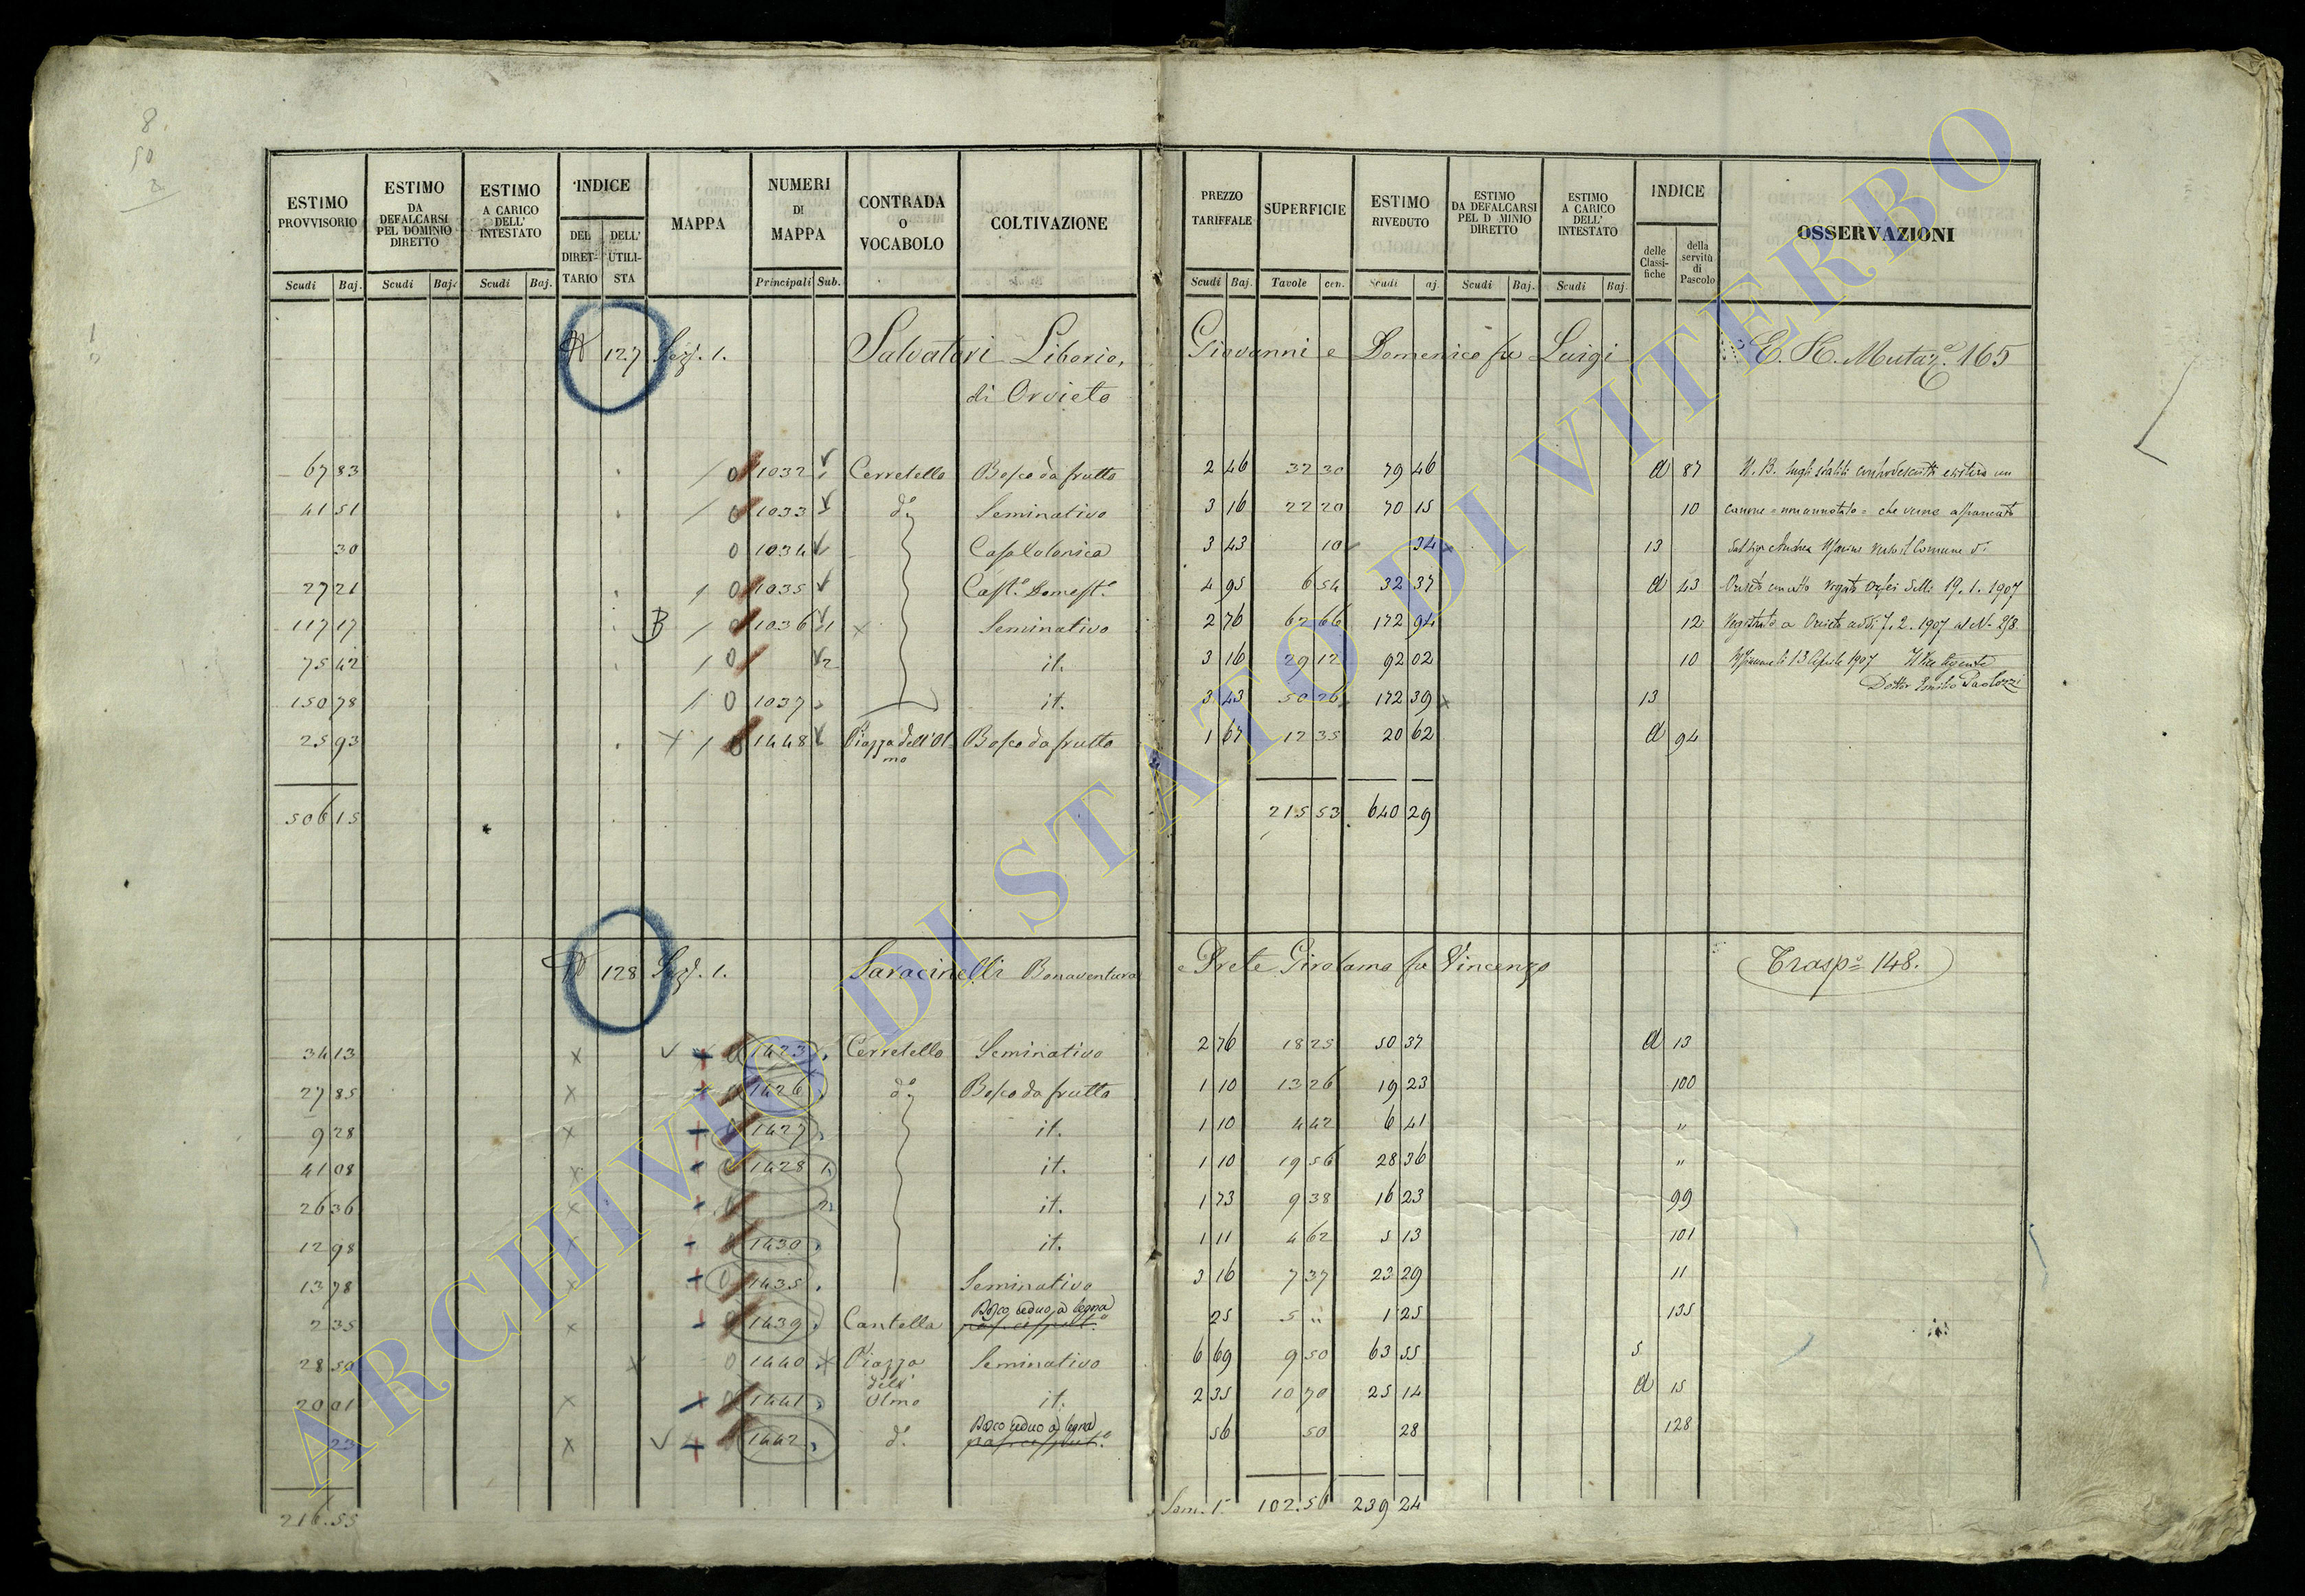 8.
50
ESTIMO PROVVISORIO | ESTIMO DA DEFALCARSI PEL DOMINIO DIRETTO | ESTIMO A CARICO DELL' INTESTATO | INDICE | MAPPA | NUMERI DI MAPPA | CONTRADA O VOCABOLO | COLTIVAZIONE | PREZZO TARIFFALE | SUPERFICIE | ESTIMO RIVEDUTO | ESTIMO DA DEFALCARSI PEL D MINIO DIRETTO | ESTIMO A CARICO DELL' INTESTATO | INDICE | OSSERVAZIONI
DEL DIRET-TARIO | DELL' UTILI-STA | delle Classi-fiche | della servitù di Pascolo
Scudi | Baj. | Scudi | Baj. | Scudi | Baj. | Principali | Sub. | Scudi | Baj. | Tavole | cen. | Scudi | aj. | Scudi | Baj. | Scudi | Baj.
127 Sez. 1. Salvatori Liborio, Giovanni e Domenico fu Luigi
di Orvieto
67 83 | 0 1032 | Cerretello | Bosco da frutto | 2 46 | 32 30 | 79 46 | 87 | N. B. Sugli stabili
41 51 | 0 1033 | do | Seminativo | 3 16 | 22 20 | 70 15 | 10 | canone = non annotato = che venne affrancato
30 | 0 1034 | Casa Colonica | 3 43 | 10 | 34 | 13 | Comune di
27 21 | 0 1035 | Casto Domesto | 4 95 | 6 54 | 32 37 | 43 | 19. 1. 1907
117 17 | B 0 1036 1 | Seminativo | 2 76 | 62 66 | 172 94 | 12 | Registrato a Orvieto addì 7. 2. 1907 al N.
75 42 | 0 2 | it. | 3 16 | 29 12 | 92 02 | 10 | 13 Aprile 1907
150 78 | 0 1037 | it. | 3 43 | 50 26 | 172 39 | 13 | Dottor Emilio Paolozzi
25 93 | 0 1448 | Piazza dell'Olmo | Bosco da frutto | 1 67 | 12 35 | 20 62 | 94
506 15 | 215 53 | 640 29
128 Sez. 1. Saracinelli Bonaventura e Prete Girolamo fu Vincenzo | Traspo 148.
34 13 | 0 1423 | Cerretello | Seminativo | 2 76 | 18 25 | 50 37 | 13
27 85 | 0 1426 | do | Bosco da frutto | 1 10 | 13 26 | 19 23 | 100
9 28 | 0 1427 | it. | 1 10 | 4 42 | 6 41 | "
41 08 | 0 1428 1 | it. | 1 10 | 19 56 | 28 36 | "
26 36 | 0 2 | it. | 1 73 | 9 38 | 16 23 | 99
12 98 | 0 1430 | it. | 1 11 | 4 62 | 5 13 | 101
13 78 | 0 1435 | Seminativo | 3 16 | 7 37 | 23 29 | 11
2 35 | 0 1439 | Cantella | Bosco ceduo a legna | 25 | 5 " | 1 25 | 135
28 50 | 0 1440 | Piazza dell' | Seminativo | 6 69 | 9 50 | 63 55 | 5
20 01 | 0 1441 | Olmo | it. | 2 35 | 10 70 | 25 14 | 15
23 | 0 1442 | do | Bosco ceduo a legna | 56 | 50 | 28 | 128
216.55 | Som. | 102.56 | 239 24
ARCHIVIO DI STATO DI VITERBO